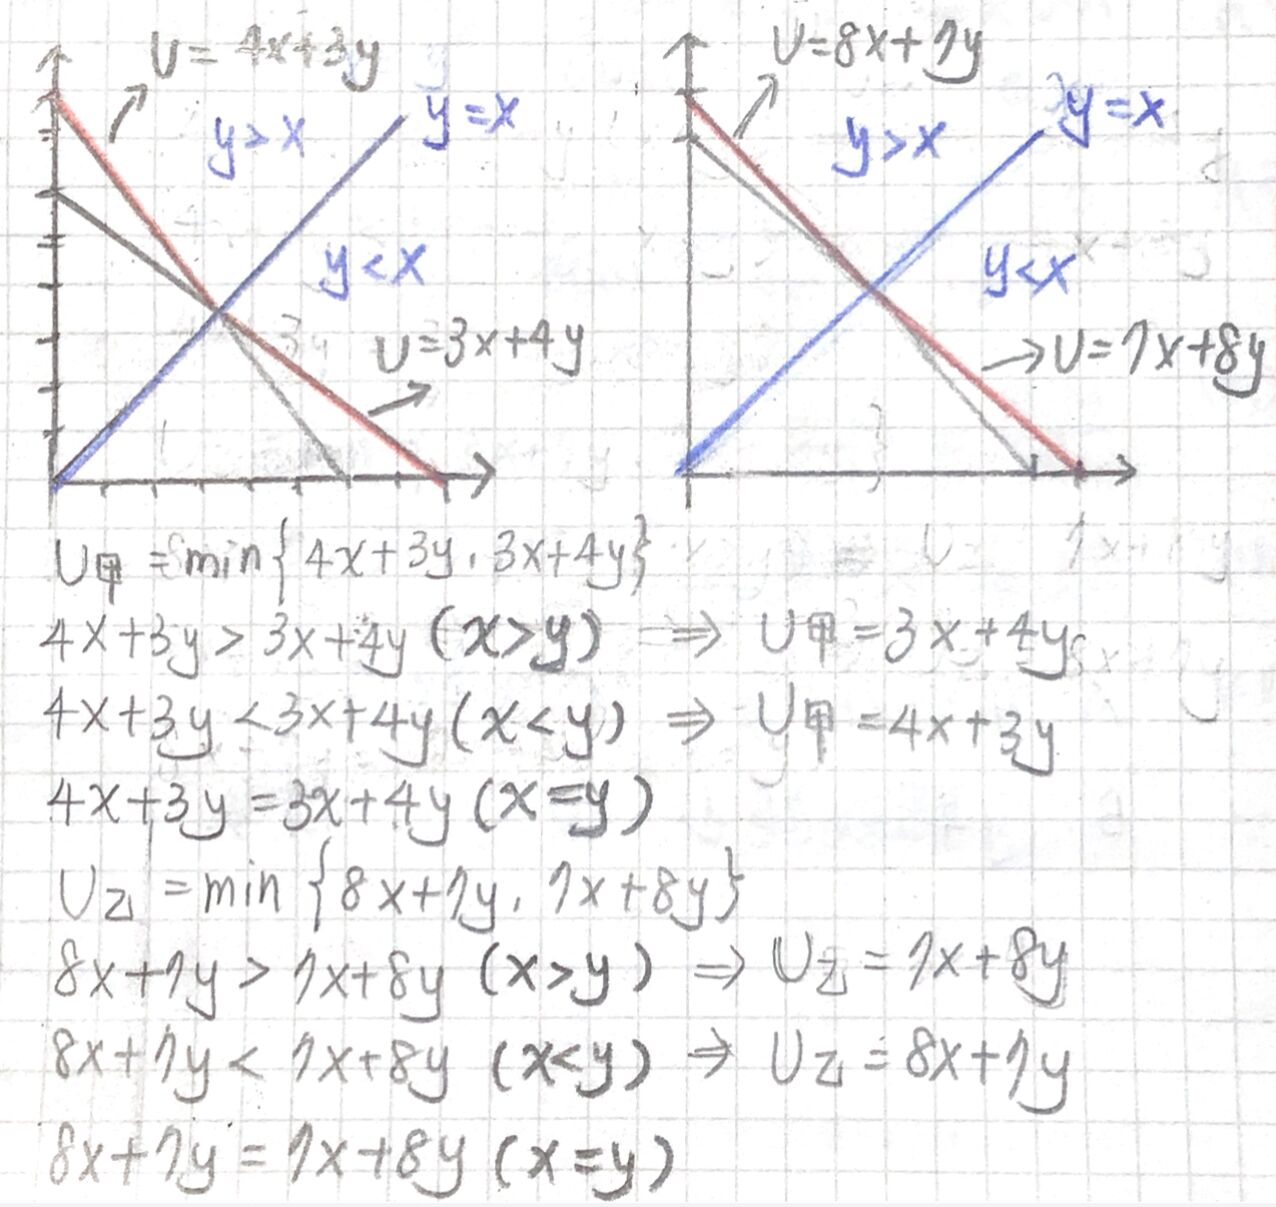 U=4x+3y
y>x
y=x
y<x
U=3x+4y
U=8x+7y
y>x
y=x
y<x
U=7x+8y
U甲=min{4x+3y,3x+4y}
4x+3y>3x+4y(x>y) ⇒ U甲=3x+4y
4x+3y<3x+4y(x<y) ⇒ U甲=4x+3y
4x+3y=3x+4y(x=y)
U乙=min{8x+7y,7x+8y}
8x+7y>7x+8y(x>y) ⇒ U乙=7x+8y
8x+7y<7x+8y(x<y) ⇒ U乙=8x+7y
8x+7y=7x+8y(x=y)